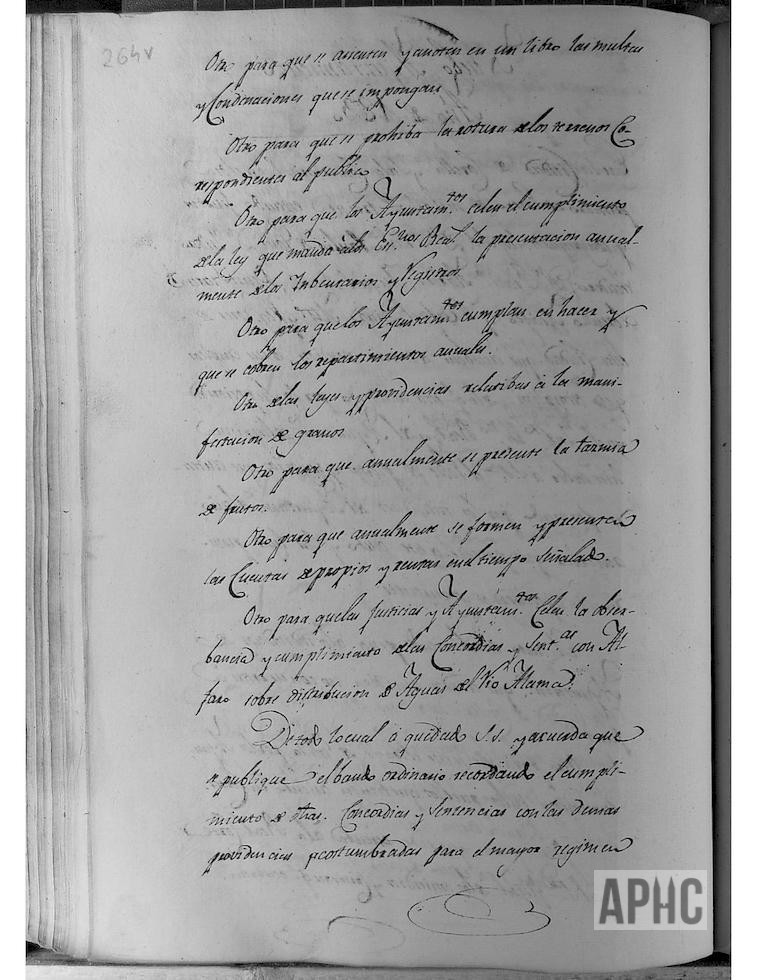 264v
Otro para que se asienten y anoten en un libro las multas
y Condenaciones que se impongan
Otro para que se prohiba la rotura de los terrenos Co-
rrespondientes al publico
Otro para que los Ayuntam.tos celen el cumplimiento
de la ley que manda a los Es.nos Real.s la presentacion anual-
mente de los Inbentarios y Registros
Otro para que los Ayuntam.tos cumplan en hacer y
que se cobren los repartimientos anuales.
Otro de las leyes y providencias relatibas a la mani-
festacion de granos
Otro para que anualmente se presente la tazmia
de frutos.
Otro para que anualmente se formen y presenten
las Cuentas de propios y rentas en el tiempo señalado.
Otro para que las Justicias y Ayuntam.tos Celen la obser-
bancia y cumplimiento de las Concordias y Sent.as con Al-
faro sobre distribucion de Aguas del Rio Alama.
De todo lo cual a quedado S.S. y acuerda que
se publique el bando ordinario recordando el cumpli-
miento de dhas. Concordias y Sentencias con las demas
providencias acostumbradas para el mayor regimen
APHC